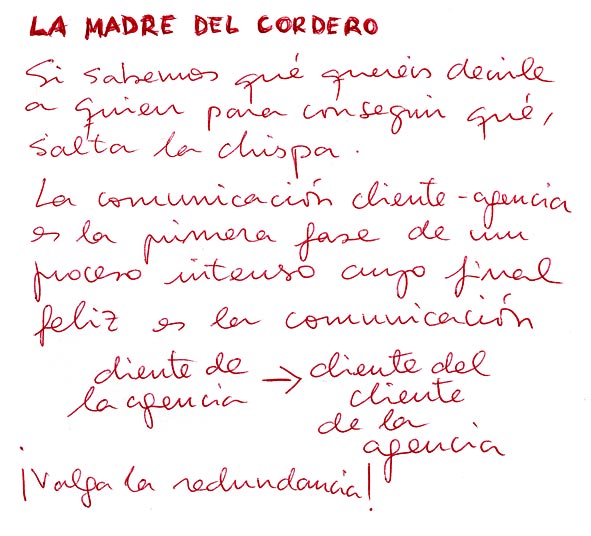 LA MADRE DEL CORDERO
Si sabemos qué queréis decirle
a quien para conseguir qué,
salta la chispa.
La comunicación cliente-agencia
es la primera fase de un
proceso intenso cuyo final
feliz es la comunicación
cliente de → cliente del
la agencia cliente
de la
agencia
¡Valga la redundancia!